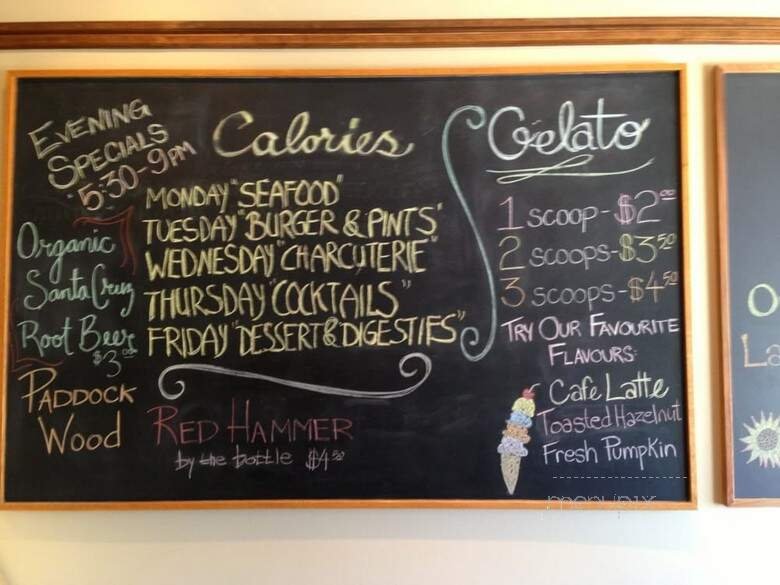 EVENING
SPECIALS
5:30-9PM
Calories
MONDAY "SEAFOOD"
TUESDAY "BURGER & PINTS"
WEDNESDAY "CHARCUTERIE"
THURSDAY "COCKTAILS"
FRIDAY "DESSERT & DIGESTIFS"
Organic
Santa Cruz
Root Beer
$3.00
PADDOCK
Wood
RED HAMMER
by the bottle $4.50
Gelato
1 scoop-$2.00
2 scoops-$3.50
3 scoops-$4.50
TRY OUR FAVOURITE
FLAVOURS:
Cafe Latte
Toasted Hazelnut
Fresh Pumpkin
menupix